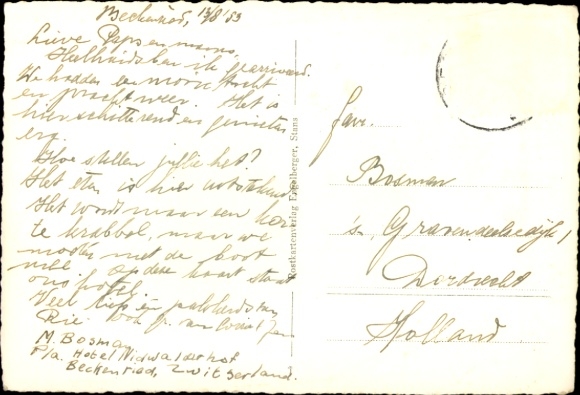 Beckenried, 12/8 '53
Lieve Paps en mams,
Heelhuids ben ik gearriveerd.
We hadden een mooie tocht
en prachtweer. Het is
hier schitterend en genieten
erg.
Hoe stellen jullie het?
Het eten is hier uitstekend.
Het wordt maar een
krabbel, maar we
moeten met de boot
mee. Op deze kaart staat
ons hotel.
Veel liefs en
Rie.
M. Bosman
P/a. Hotel Nidwalderhof
Beckenried, Zwitserland.
Postkartenverlag Engelberger, Stans
Fam.
Bosman
's Gravendeelsedijk 1
Dordrecht
Holland